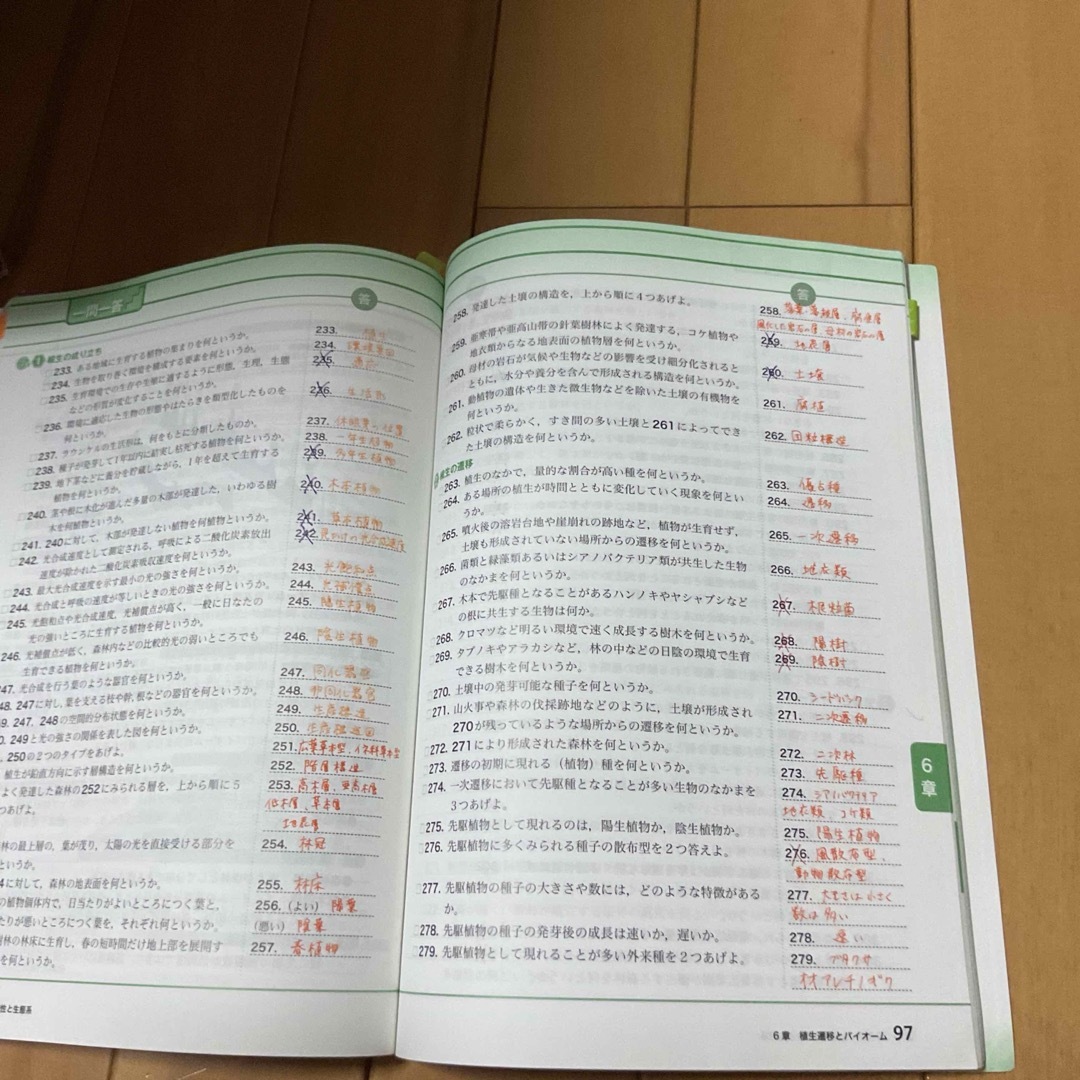 一問一答
答
1 植生の成り立ち
233. ある地域に生育する植物の集まりを何というか。
234. 生物を取り巻く環境を構成する要素を何というか。
235. 生育環境での生存や生殖に適するように形態、生理、生態
などの形質が変化することを何というか。
236. 環境に適応した生物の形態やはたらきを類型化したものを
何というか。
237. ラウンケルの生活形は、何をもとに分類したものか。
238. 種子が発芽して1年以内に結実し枯死する植物を何というか。
239. 地下茎などに養分を貯蔵しながら、1年を超えて生育する
植物を何というか。
240. 茎や根に木化が進んだ多量の木部が発達した、いわゆる樹
木を何植物というか。
241. 240に対して、木部が発達しない植物を何植物というか。
242. 光合成速度として測定される、呼吸による二酸化炭素放出
速度が除かれた二酸化炭素吸収速度を何というか。
243. 最大光合成速度を示す最小の光の強さを何というか。
244. 光合成と呼吸の速度が等しいときの光の強さを何というか。
245. 光飽和点や光合成速度、光補償点が高く、一般に日なたの
光の強いところに生育する植物を何というか。
246. 光補償点が低く、森林内などの比較的光の弱いところでも
生育できる植物を何というか。
247. 光合成を行う葉のような器官を何というか。
247に対し、葉を支える枝や幹、根などの器官を何というか。
247、248の空間的分布状態を何というか。
249と光の強さの関係を表した図を何というか。
250の2つのタイプをあげよ。
植生が鉛直方向に示す層構造を何というか。
よく発達した森林の252にみられる層を、上から順に5
つあげよ。
林の最上層の、葉が茂り、太陽の光を直接受ける部分を
というか。
4に対して、森林の地表面を何というか。
の植物個体内で、日当たりがよいところにつく葉と、
たりが悪いところにつく葉を、それぞれ何というか。
樹林の林床に生育し、春の短時間だけ地上部を展開す
を何というか。
233.
234. 環境要因
235. 適応
236. 生活形
237. 休眠芽の位置
238. 一年生植物
239. 多年生植物
240. 木本植物
241. 草本植物
242. 見かけの光合成速度
243. 光飽和点
244. 光補償点
245. 陽生植物
246. 陰生植物
247. 同化器官
248. 非同化器官
249. 生産構造
250. 生産構造図
251. 広葉草本型、イネ科草本型
252. 階層構造
253. 高木層、亜高木層
低木層、草本層
地表層
254. 林冠
255. 林床
256. (よい) 陽葉
(悪い) 陰葉
257. 春植物
性と生態系
答
258. 発達した土壌の構造を、上から順に4つあげよ。
259. 亜寒帯や亜高山帯の針葉樹林によく発達する、コケ植物や
地衣類からなる地表面の植物層を何というか。
260. 母材の岩石が気候や生物などの影響を受け細分化されると
ともに、水分や養分を含んで形成される構造を何というか。
261. 動植物の遺体や生きた微生物などを除いた土壌の有機物を
何というか。
262. 粒状で柔らかく、すき間の多い土壌と261によってでき
た土壌の構造を何というか。
植生の遷移
263. 植生のなかで、量的な割合が高い種を何というか。
264. ある場所の植生が時間とともに変化していく現象を何とい
うか。
265. 噴火後の溶岩台地や崖崩れの跡地など、植物が生育せず、
土壌も形成されていない場所からの遷移を何というか。
266. 菌類と緑藻類あるいはシアノバクテリア類が共生した生物
のなかまを何というか。
267. 木本で先駆種となることがあるハンノキやヤシャブシなど
の根に共生する生物は何か。
268. クロマツなど明るい環境で速く成長する樹木を何というか。
269. タブノキやアラカシなど、林の中などの日陰の環境で生育
できる樹木を何というか。
270. 土壌中の発芽可能な種子を何というか。
271. 山火事や森林の伐採跡地などのように、土壌が形成され
270が残っているような場所からの遷移を何というか。
272. 271により形成された森林を何というか。
273. 遷移の初期に現れる(植物)種を何というか。
274. 一次遷移において先駆種となることが多い生物のなかまを
3つあげよ。
275. 先駆植物として現れるのは、陽生植物か、陰生植物か。
276. 先駆植物に多くみられる種子の散布型を2つ答えよ。
277. 先駆植物の種子の大きさや数には、どのような特徴がある
か。
278. 先駆植物の種子の発芽後の成長は速いか、遅いか。
279. 先駆植物として現れることが多い外来種を2つあげよ。
258. 落葉・落枝層、腐植層
風化した岩石の層 母材の岩石の層
259. 地表層
260. 土壌
261. 腐植
262. 団粒構造
263. 優占種
264. 遷移
265. 一次遷移
266. 地衣類
267. 根粒菌
268. 陽樹
269. 陰樹
270. シードバンク
271. 二次遷移
272. 二次林
273. 先駆種
274. シアノバクテリア
地衣類、コケ類
275. 陽生植物
276. 風散布型、
動物散布型
277. 大きさは小さく
数は多い
278. 速い
279. ブタクサ
オオアレチノギク
6章
6章 植生遷移とバイオーム 97